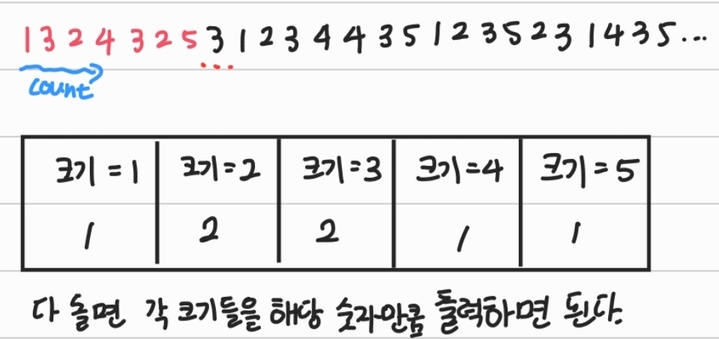 1 3 2 4 3 2 5 3 1 2 3 4 4 3 5 1 2 3 5 2 3 1 4 3 5 ...
...
count
크기=1 크기=2 크기=3 크기=4 크기=5
1 2 2 1 1
다 돌면 각 크기들을 해당 숫자만큼 출력하면 된다.